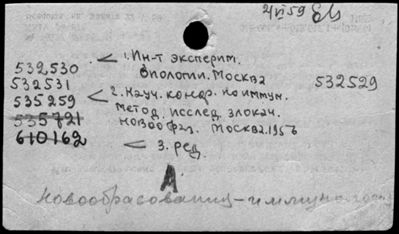 4/VI 59
532,530 < 1. Ин-т эксперим.
биологии. Москва
532531 532529
535259 < 2. Науч. конф. по иммун.
метод. исслед. злокач.
535721 новообраз. Москва. 1956
610162 < 3. ред.
А
новообразования-иммунология